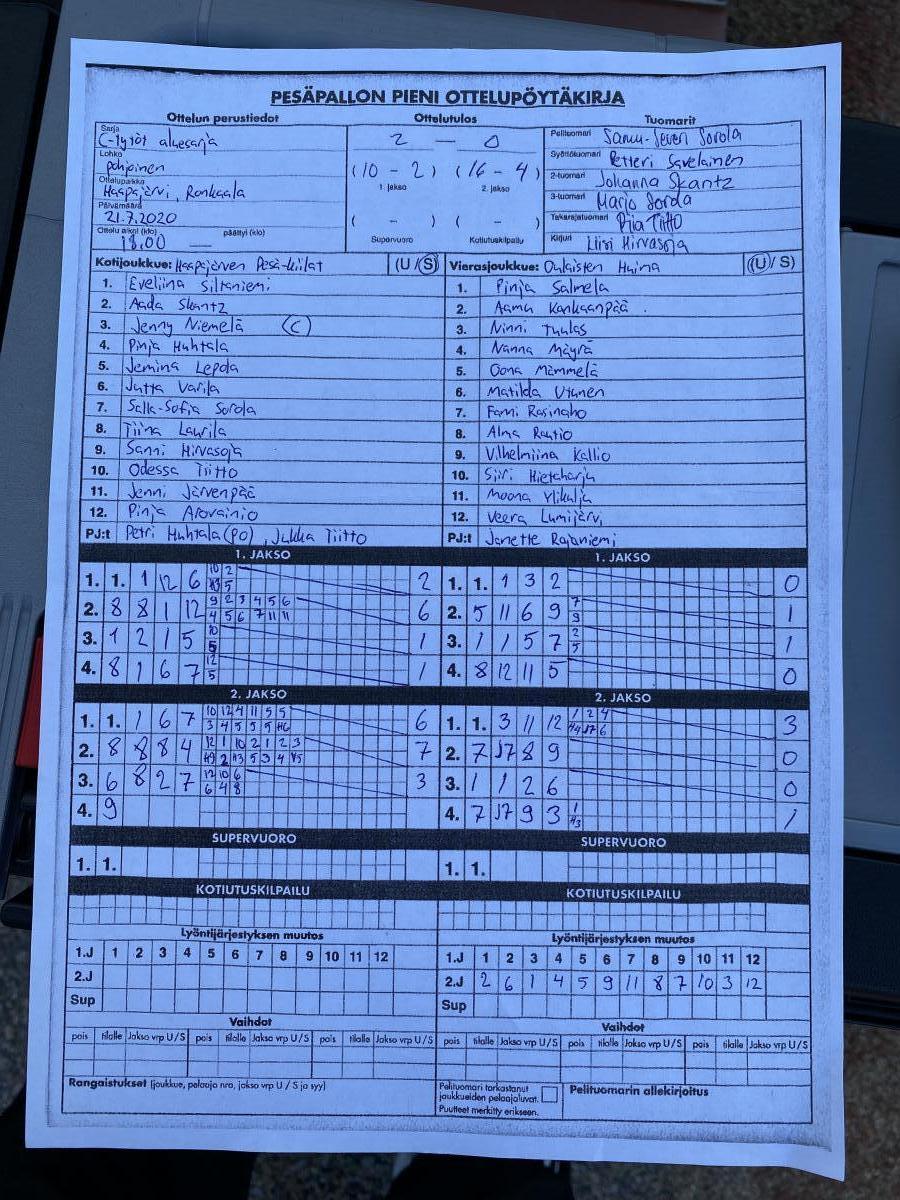 PESÄPALLON PIENI OTTELUPÖYTÄKIRJA
Ottelun perustiedot
Sarja
C-tytöt aluesarja
Lohko
pohjoinen
Ottelupaikka
Haapajärvi, Ronkaala
Päivämäärä
21.7.2020
Ottelu alkoi (klo) päättyi (klo)
18.00 —
Ottelutulos
2 — 0
(10 - 2) (16 - 4)
1. jakso 2. jakso
( - ) ( - )
Supervuoro Kotiutuskilpailu
Tuomarit
Pelituomari Samu-Severi Sorola
Syöttötuomari Petteri Savelainen
2-tuomari Johanna Skantz
3-tuomari Marjo Sorola
Takarajatuomari Piia Tiitto
Kirjuri Liisi Hirvasoja
Kotijoukkue: Haapajärven Pesä-Kiilat (U / S)
1. Eveliina Siltaniemi
2. Aada Skantz
3. Jenny Niemelä (C)
4. Pinja Huhtala
5. Jemina Leppä
6. Jutta Varila
7. Salla-Sofia Sorola
8. Tiina Laurila
9. Sanni Hirvasoja
10. Odessa Tiitto
11. Jenni Järvenpää
12. Pinja Arovainio
PJ:t Petri Huhtala (PO), Jukka Tiitto
Vierasjoukkue: Oulaisten Huima (U / S)
1. Pinja Salmela
2. Aamu Kankaanpää
3. Ninni Tuulas
4. Nanna Mäyrä
5. Oona Mämmelä
6. Matilda Utunen
7. Fanni Rasinaho
8. Alma Rautio
9. Vilhelmiina Kallio
10. Siiri Hietaharja
11. Moona Ylikulja
12. Veera Lumijärvi
PJ:t Janette Rajaniemi
1. JAKSO
1. 1. 1 12 6 2
2. 8 8 1 12 9 2 3 4 5 6 6
4 5 6 7 11 11
3. 1 2 1 5 1
4. 8 1 6 7 12 1
5
1. JAKSO
1. 1. 1 3 2 0
2. 5 11 6 9 7 1
9
3. 1 1 5 7 2 1
5
4. 8 12 11 5 0
2. JAKSO
1. 1. 1 6 7 10 12 4 11 5 5 6
3 4 5 5 5
2. 8 8 8 4 12 1 10 2 1 2 3 7
3. 6 8 2 7 12 10 6 3
6 4 8
4. 9
2. JAKSO
1. 1. 3 11 12 1 2 4 3
2. 7 J7 8 9 0
3. 1 1 2 6 0
4. 7 J7 9 3 1 1
SUPERVUORO
1. 1.
SUPERVUORO
1. 1.
KOTIUTUSKILPAILU
KOTIUTUSKILPAILU
Lyöntijärjestyksen muutos
1.J 1 2 3 4 5 6 7 8 9 10 11 12
2.J
Sup
Lyöntijärjestyksen muutos
1.J 1 2 3 4 5 6 7 8 9 10 11 12
2.J 2 6 1 4 5 9 11 8 7 10 3 12
Sup
Vaihdot
pois tilalle Jakso vrp U / S pois tilalle Jakso vrp U / S pois tilalle Jakso vrp U / S
Vaihdot
pois tilalle Jakso vrp U / S pois tilalle Jakso vrp U / S pois tilalle Jakso vrp U / S
Rangaistukset (joukkue, pelaaja nro, jakso vrp U / S ja syy)
Pelituomari tarkastanut
joukkueiden pelaajaluvat.
Puutteet merkitty erikseen.
Pelituomarin allekirjoitus